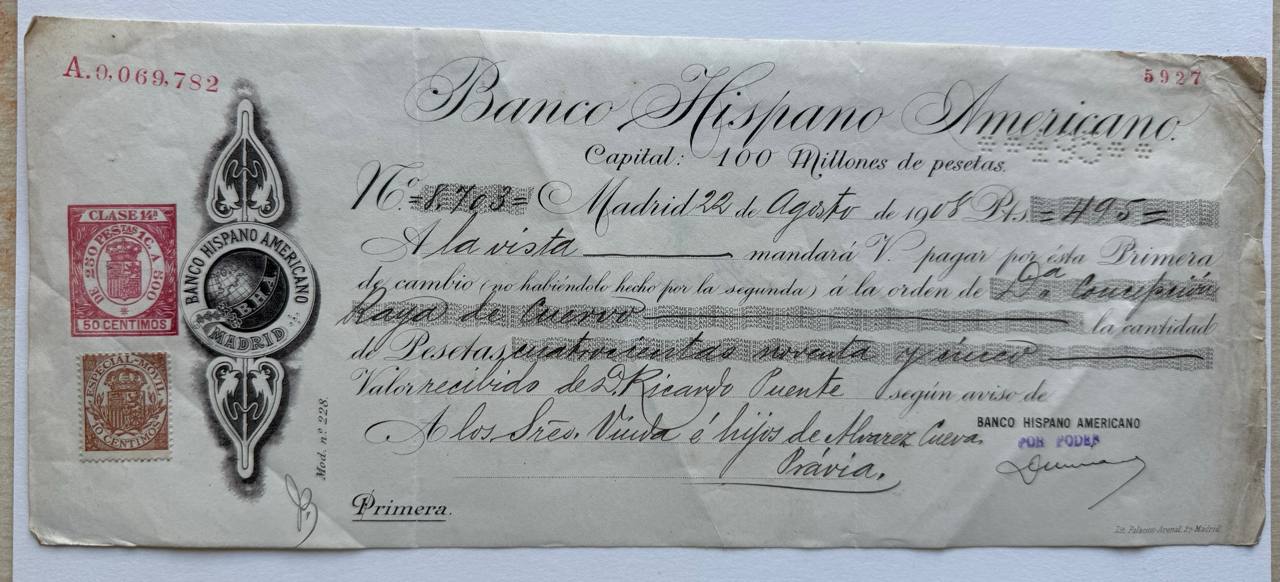 A.0,069,782
5927
Banco Hispano Americano.
**495**
Capital: 100 Millones de pesetas.
Nº. =8,703= Madrid 22 de Agosto de 1908 Pts =495=
A la vista mandará V. pagar por ésta Primera
de cambio (no habiéndolo hecho por la segunda) á la orden de Dª Concepción
Raya de Cuervo la cantidad
de Pesetas cuatrocientas noventa y cinco
Valor recibido de D. Ricardo Puente según aviso de
A los Sres. Viuda é hijos de Alvarez Cueva
Právia.
BANCO HISPANO AMERICANO
POR PODER
Primera.
Mod. nº 228.
CLASE 14ª
DE 250 PESTAS 1C. A 500
50 CENTIMOS
ESPECIAL MOVIL
10 CENTIMOS
BANCO HISPANO AMERICANO
BHA
MADRID
Lit. Palacios-Arenal, 27-Madrid